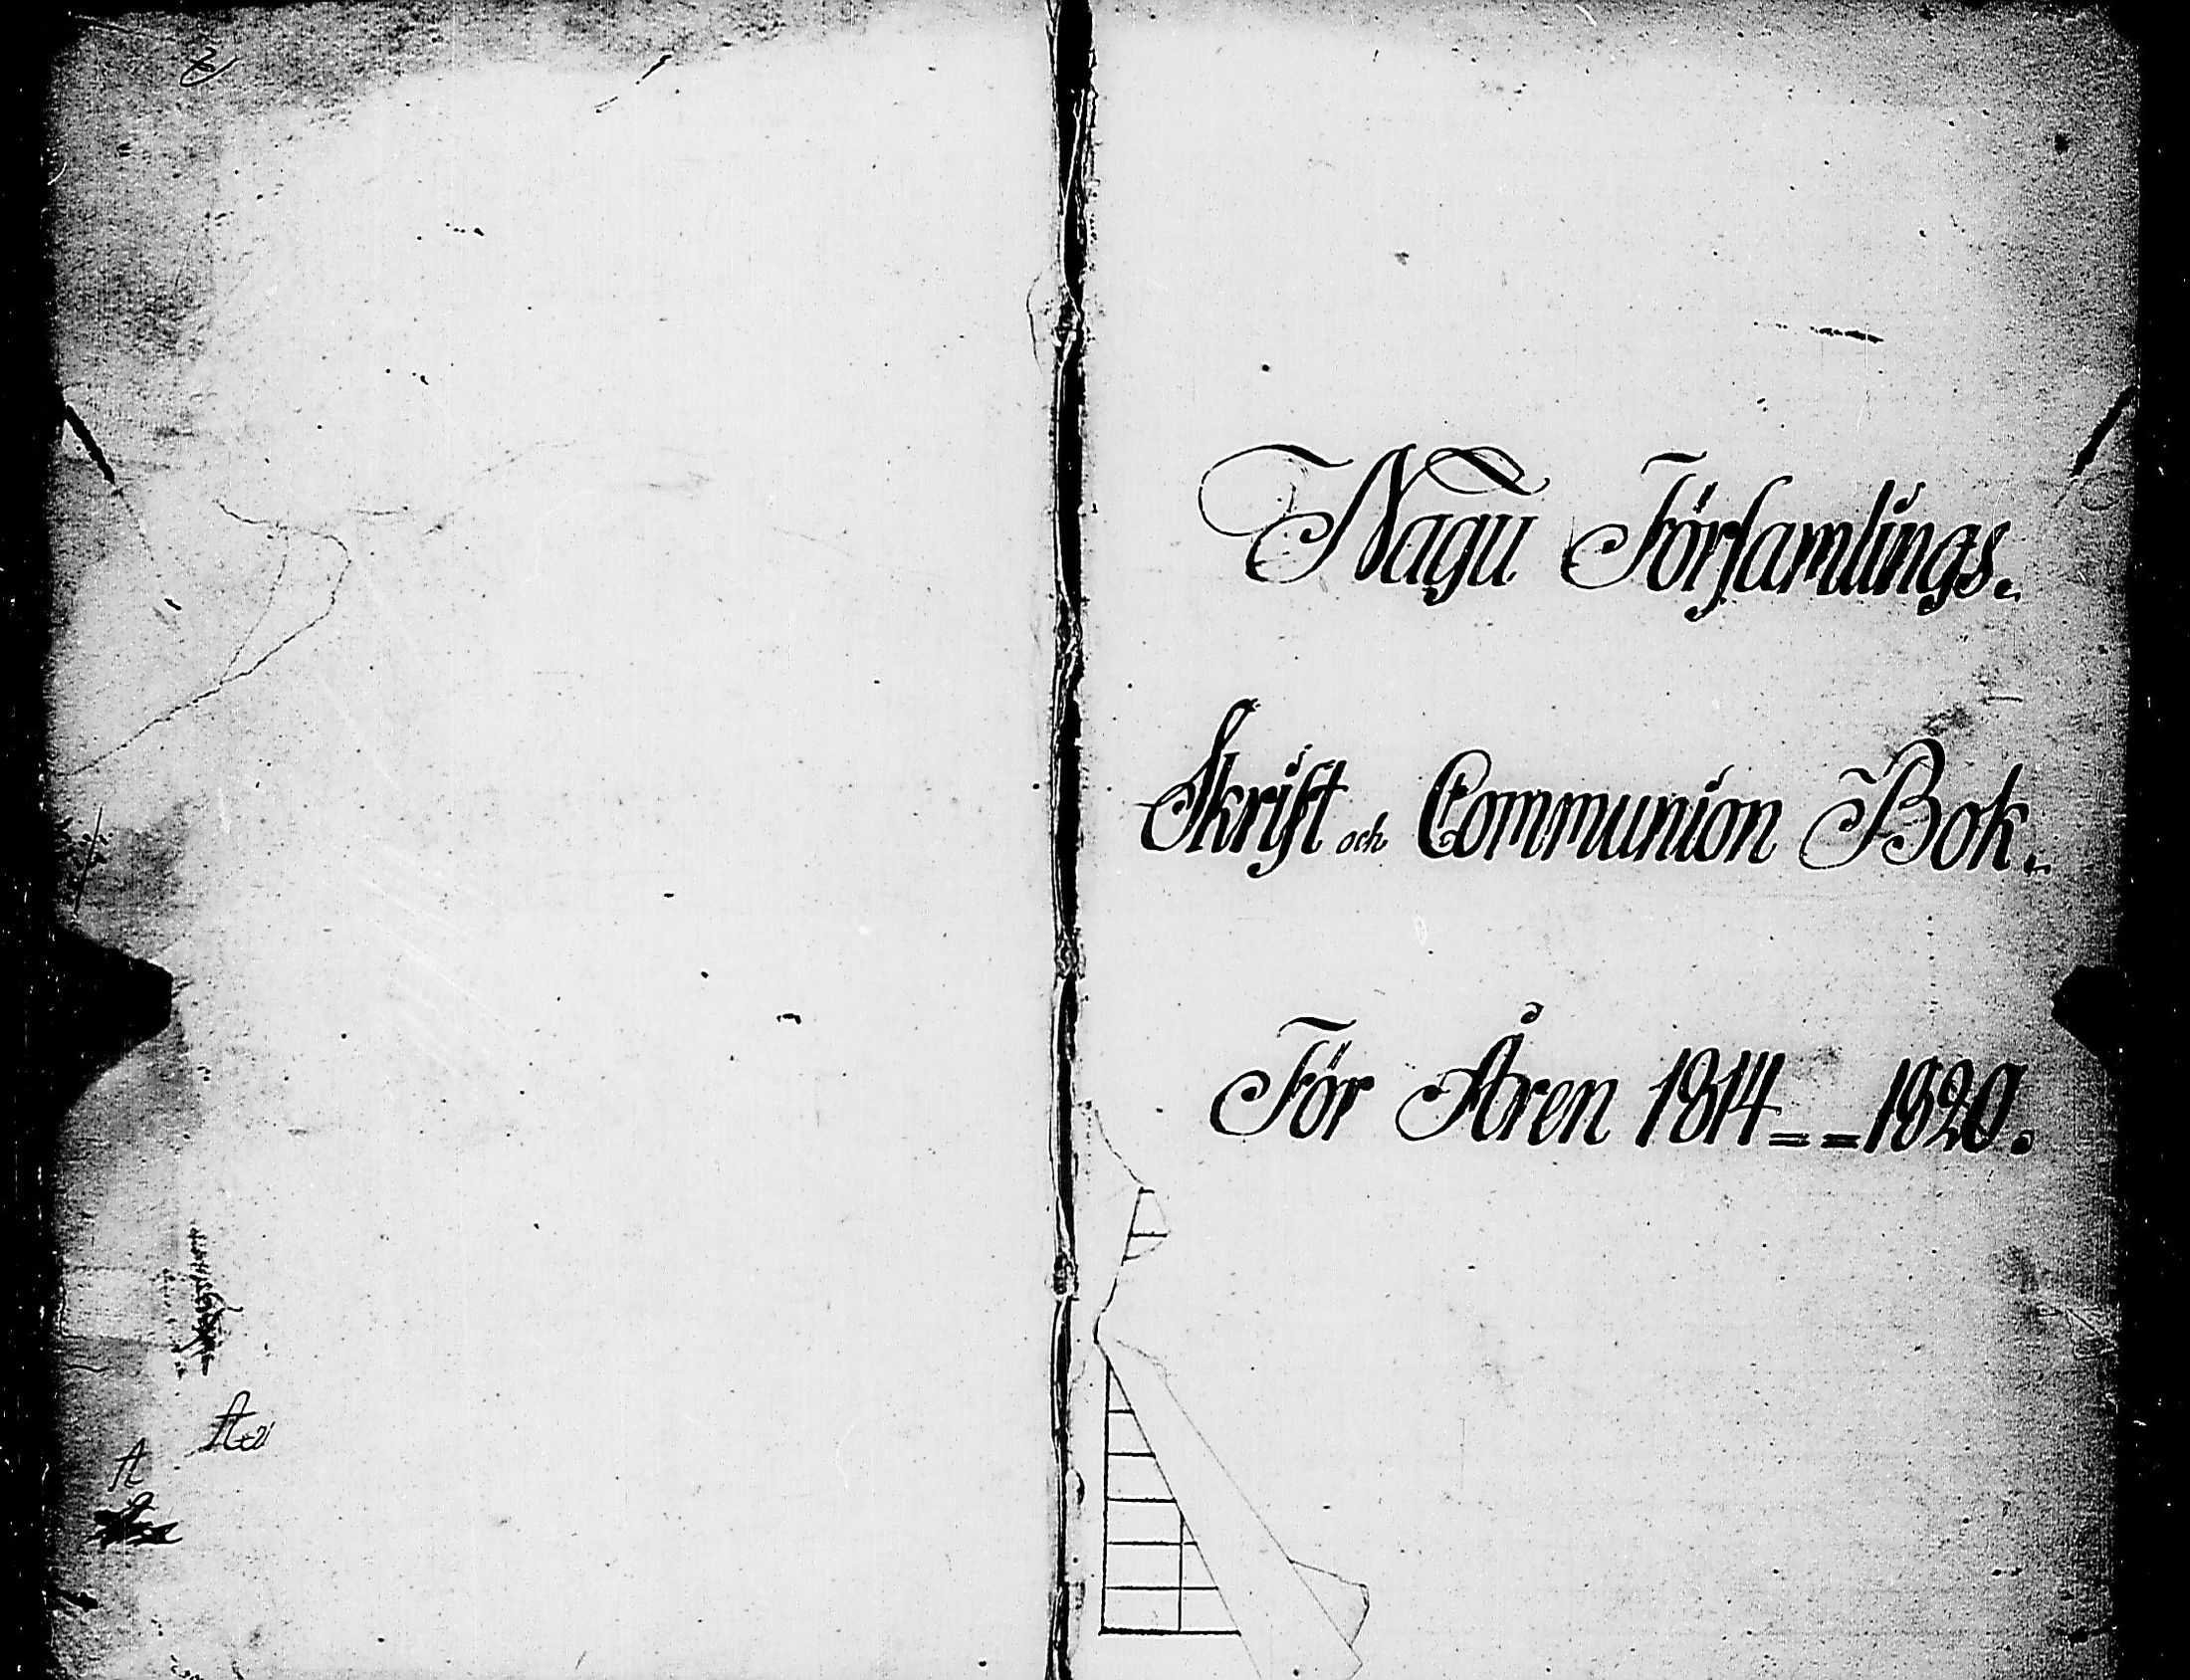 Nagu Församlings.
Skrift och Communion Bok.
För Åren 1814 = = 1820.